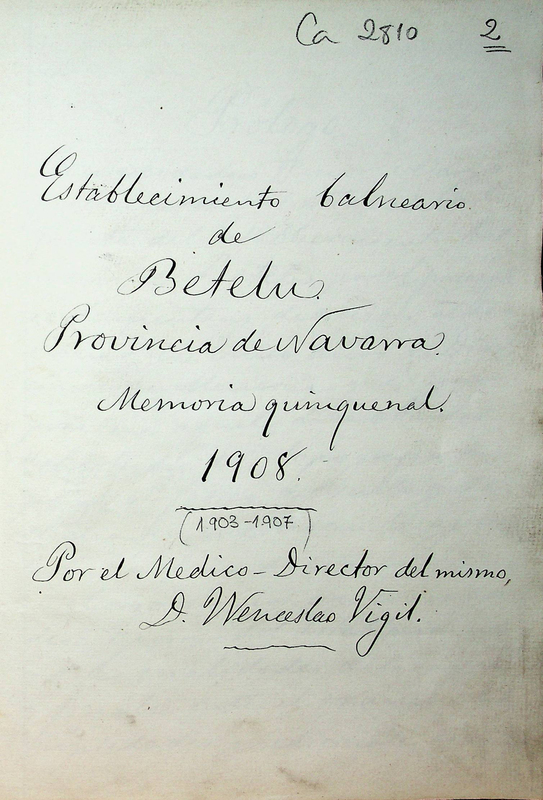 Ca 2810 2
Establecimiento balneario
de
Betelu.
Provincia de Navarra.
Memoria quinquenal.
1908.
(1903-1907)
Por el Medico-Director del mismo,
D. Wenceslao Vigil.